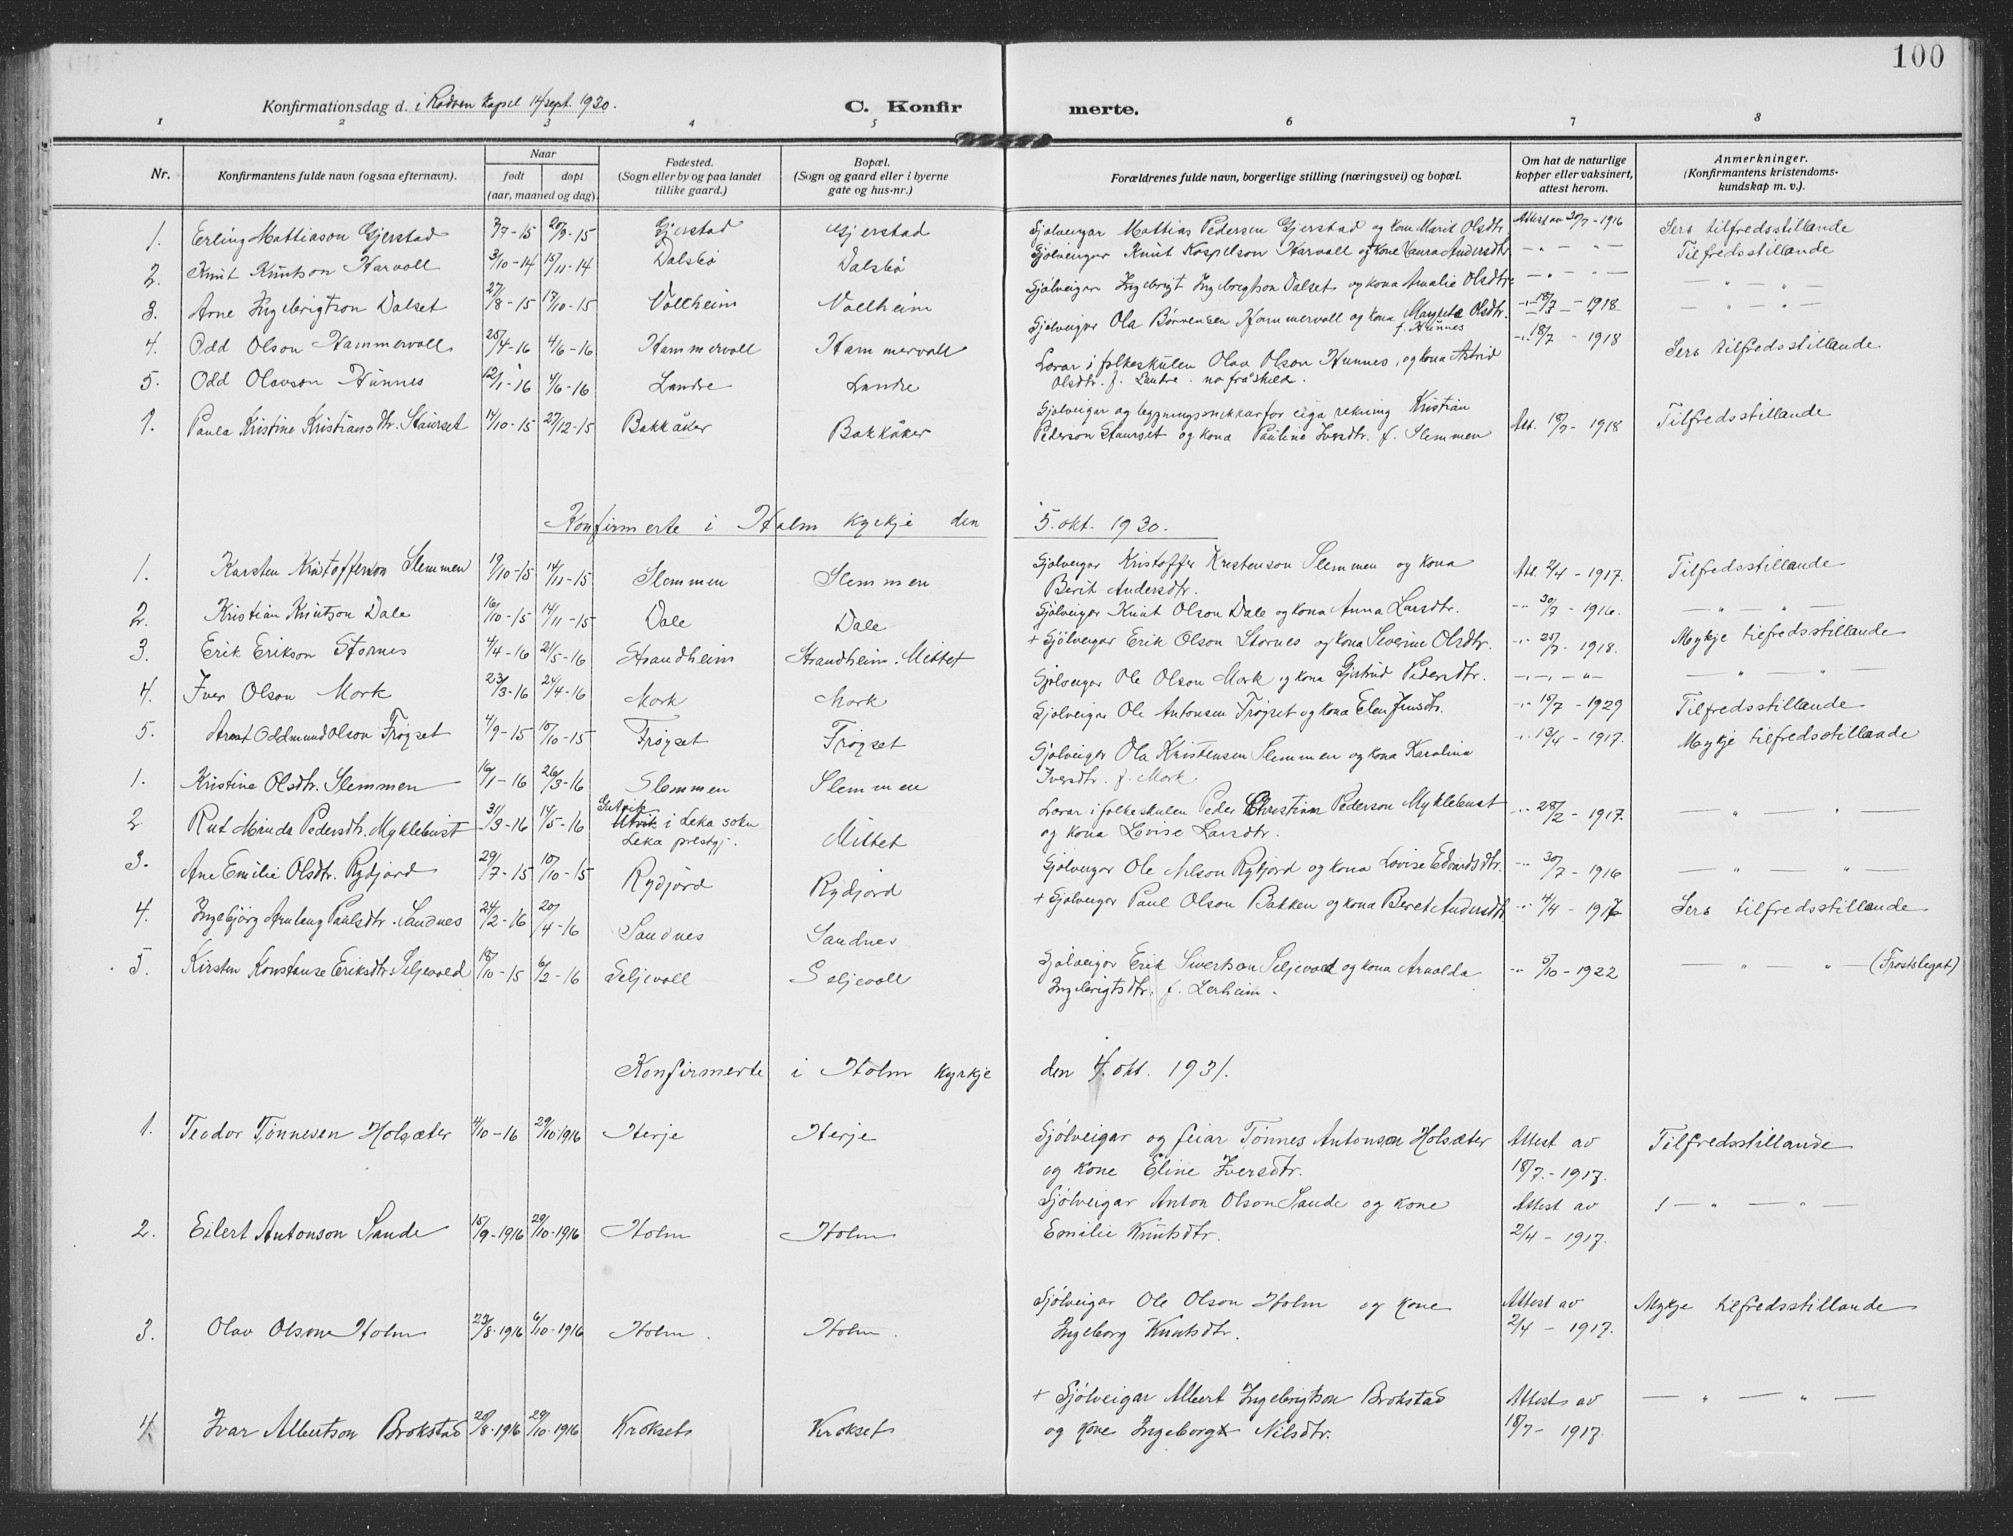 100
Konfirmationsdag d. i Rødven kapel 14 sept. 1930. C. Konfir merte.
1 2 3 4 5 6 7 8
Nr. Konfirmantens fulde navn (ogsaa efternavn). Naar født døpt (aar, maaned og dag). Fødested. (Sogn eller by og paa landet tillike gaard.) Bopæl. (Sogn og gaard eller i byerne gate og hus-nr.) Forældrenes fulde navn, borgerlige stilling (næringsvei) og bopæl. Om hat de naturlige kopper eller vaksinert, attest herom. Anmerkninger. (Konfirmantens kristendomskundskap m. v.).
1. Erling Mattiason Gjerstad 7/7-15 20/9-15 Gjerstad Gjerstad Sjølveigar Mattias Pedersen Gjerstad og kone Marit Olsdtr. Attest av 30/7-1916 Sers tilfredsstillande
2. Knut Knutson Harvoll 3/10-14 15/11-14 Dalsbø Dalsbø Sjølveigar Knut Harvoll og kone Laura Andersdtr. — " — " — Tilfredsstillande
3. Arne Ingebrigtson Dalset 27/8-15 17/10-15 Vollheim Vollheim Sjølveigar Ingebrigt Ingebrigtson Dalset og kona Amalie Olsdtr. — " — " — — " — " —
4. Odd Olson Hammervoll 25/4-16 4/6-16 Hammervoll Hammervoll Sjølveigar Ola Hammervoll og kona Olsdtr. f. Hunnes 18/7 - 1918 — " — " —
5. Odd Olavson Hunnes 12/1-16 4/6-16 Landre Landre Lærar i folkeskulen Olav Olson Hunnes, og kona Astrid -"- 18/7 - 1918 Sers tilfredsstillande
Olsdtr. f. Landre. no fråskild.
1. Paula Kristine Kristiansdtr. Staurset 14/10-15 27/12-15 Bakkåker Bakkåker Sjølveigar og byggningssnikkar for eiga rekning Kristian
Pederson Staurset og kona Pauline Iversdtr. f. Slemmen Att. 18/7 - 1918 Tilfredsstillande
Konfirmerte i Holm kyrkje den 5. okt. 1930.
1. Karsten Kristofferson Slemmen 19/10-15 14/11-15 Slemmen Slemmen Sjølveigar Kristoffer Kristenson Slemmen og kona Att. 2/4 - 1917. Tilfredsstillande
Berit Andersdtr.
2. Kristian Knutson Dale 16/10-15 14/11-15 Dale Dale Sjølveigar Knut Olson Dale og kona Anna Larsdtr. -"- 30/7 - 1916. — " — " —
3. Erik Erikson Stornes 4/4-16 21/5-16 Strandheim Strandheim. Mittet + Sjølveigar Erik Olson Stornes og kona Severine Olsdtr. -"- 25/7 - 1918. Mykje tilfredsstillande
4. Iver Olson Mork 23/3-16 24/4-16 Mork Mork Sjølveigar Ole Olson Mork og kona Gjertrud Pedersdtr. — " — " — — " — " —
5. Arnt Oddmund Olson Frøyset 4/9-15 10/10-15 Frøyset Frøyset Sjølveigar Ole Antonsen Frøyset og kona Elen Jensdtr. -"- 15/7 - 1929 Tilfredsstillande
1. Kristine Olsdtr. Slemmen 16/1-16 26/3-16 Slemmen Slemmen Sjølveigar Ola Kristensen Slemmen og kona Karolina -"- 13/4 - 1917. Mykje tilfredsstillande
Iversdtr. f. Mork
2 Rut Minda Pedersdtr. Myklebust 31/3-16 14/5-16 Gutvik i Leka sokn Mittet Lærar i folkeskulen Peder Christian Pederson Myklebust -"- 28/2 - 1917. — " — " —
Leka prestgj. og kona Lovise Larsdtr.
3. Ane Emilie Olsdtr. Rydjord 29/7-15 10/10-15 Rydjord Rydjord Sjølveigar Ole Nilson Rydjord og kona Lovise Edvardsdtr. -"- 30/7 - 1916 — " — " —
4. Ingebjørg Arnlaug Paulsdtr. Sandnes 24/2-16 20/4-16 Sandnes Sandnes + Sjølveigar Paul Olson Bakken og kona Beret Andersdtr. -"- 4/4 - 1917 Sers tilfredsstillande
5. Kirsten Konstanse Eriksdtr. Seljevold 18/10-15 6/2-16 Seljevoll Seljevoll Sjølveigar Erik Sivertson Seljevold og kona Arnolda -"- 5/10-1922 — " — " — (Frostslegat)
Ingebrigtsdtr. f. Lerheim.
Konfirmerte i Holm kyrkje den 4. okt. 1931.
1. Teodor Tønnesen Holsæter 4/10-16 29/10 1916 Herje Herje Sjølveigar og feiar Tønnes Antonson Holsæter Attest av Tilfredsstillande
og kone Eline Iversdtr. 18/7.-1917.
2. Eilert Antonson Sande 15/9-1916 29/10-1916 Holm Holm Sjølveigar Anton Olson Sande og kone Attest av — " — " —
Emilie Knutsdtr. 2/4 - 1917.
3. Olav Olsone Holm 23/8-1916 6/10-1916 Holm. Holm. Sjølveigar Ole Olson Holm og kone Attest av Mykje tilfredsstillande
Ingeborg Knutsdtr. 2/4 - 1917.
4. Ivar Albertson Brokstad 20/8-1916 29/10-1916 Krokset Krokset + Sjølveigar Albert Ingebrigtson Brokstad Attest av — " — " —
og kone Ingeborg Nilsdtr. 18/7 - 1917.